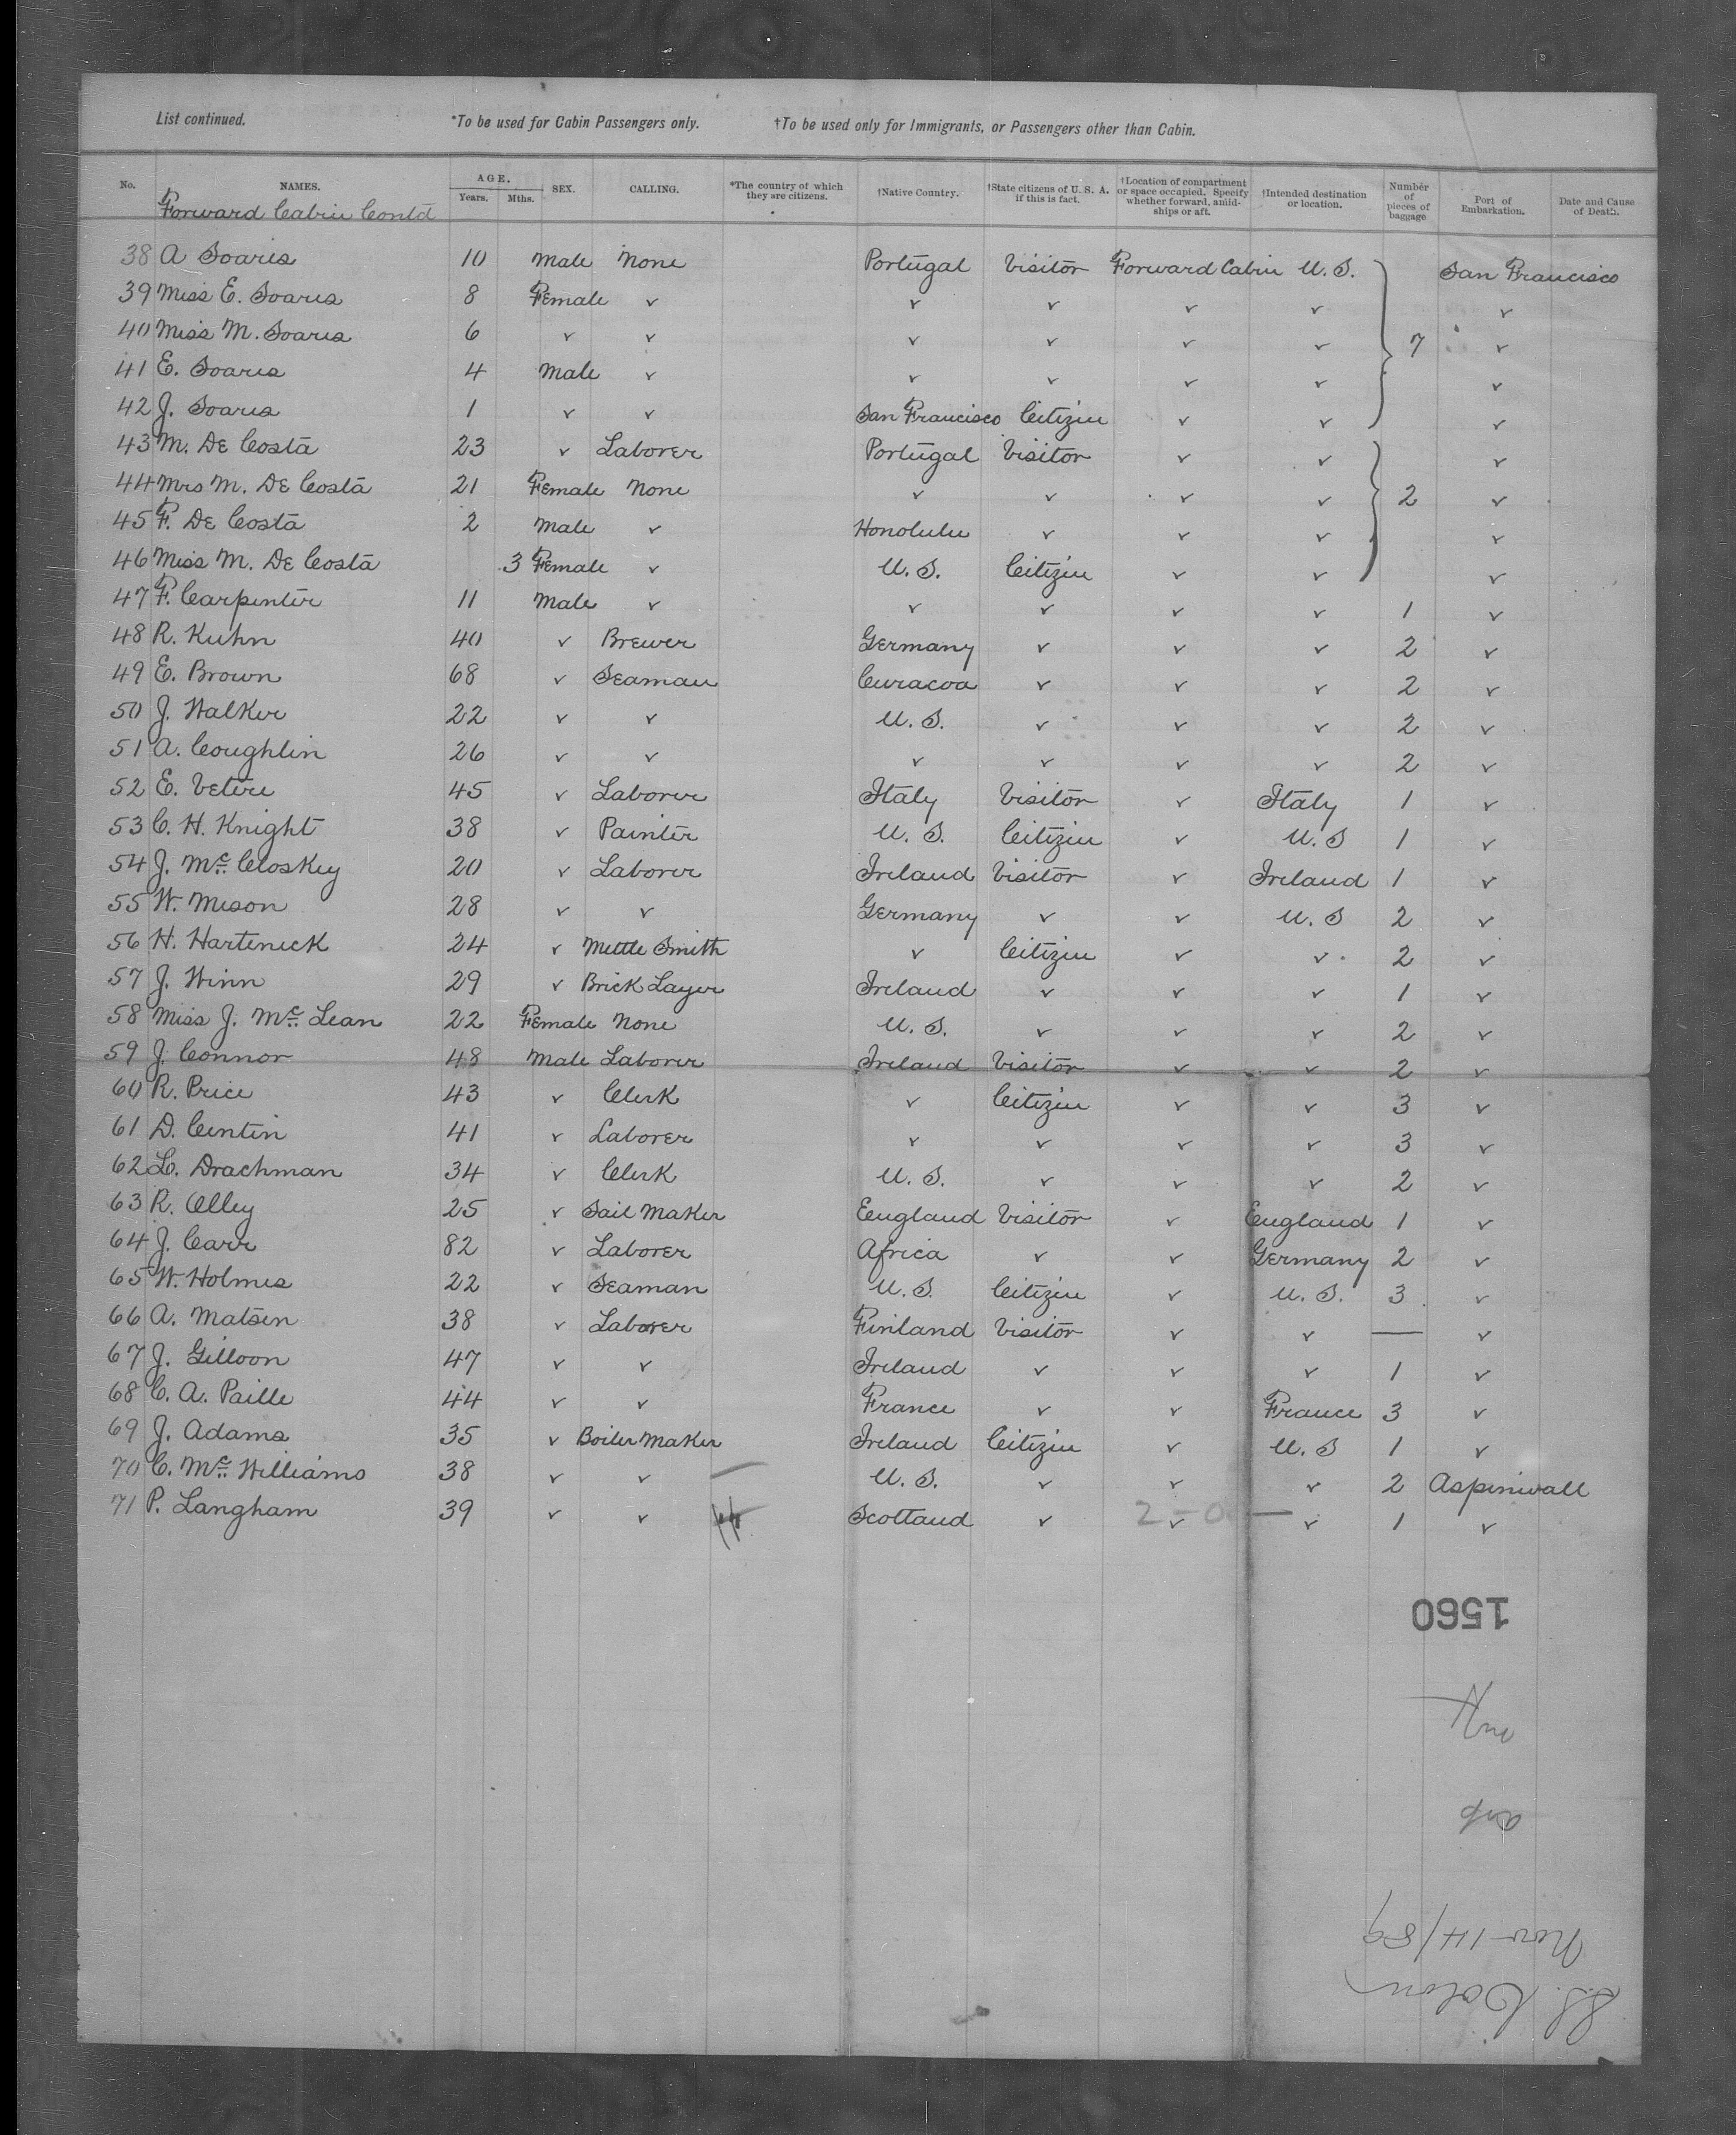 List continued. *To be used for Cabin Passengers only. †To be used only for Immigrants, or Passengers other than Cabin.
No. NAMES. AGE. Years. Mths. SEX. CALLING. *The country of which they are citizens. †Native Country. †State citizens of U. S. A. if this is fact. †Location of compartment or space occupied. Specify whether forward, amidships or aft. †Intended destination or location. Number of pieces of baggage Port of Embarkation. Date and Cause of Death.
Forward Cabin Contd
38 A Soares 10 Male None Portugal Visitor Forward Cabin U. S. San Francisco
39 Miss E. Soares 8 Female ✓ ✓ ✓ ✓ ✓ ✓
40 Miss M. Soares 6 ✓ ✓ ✓ ✓ ✓ ✓ 7 ✓
41 E. Soares 4 Male ✓ ✓ ✓ ✓ ✓ ✓
42 J. Soares 1 ✓ ✓ San Francisco Citizen ✓ ✓ ✓
43 M. De Costa 23 ✓ Laborer Portugal Visitor ✓ ✓ ✓
44 Mrs M. De Costa 21 Female None ✓ ✓ ✓ ✓ 2 ✓
45 F. De Costa 2 Male ✓ Honolulu ✓ ✓ ✓ ✓
46 Miss M. De Costa 3 Female ✓ U. S. Citizen ✓ ✓ ✓
47 F. Carpenter 11 Male ✓ ✓ ✓ ✓ ✓ 1 ✓
48 R. Kuhn 40 ✓ Brewer Germany ✓ ✓ ✓ 2 ✓
49 E. Brown 68 ✓ Seaman Curacoa ✓ ✓ ✓ 2 ✓
50 J. Walker 22 ✓ ✓ U. S. ✓ ✓ ✓ 2 ✓
51 A. Coughlin 26 ✓ ✓ ✓ ✓ ✓ ✓ 2 ✓
52 E. Vetere 45 ✓ Laborer Italy Visitor ✓ Italy 1 ✓
53 C. H. Knight 38 ✓ Painter U. S. Citizen ✓ U. S 1 ✓
54 J. Mc Closkey 20 ✓ Laborer Ireland Visitor ✓ Ireland 1 ✓
55 W. Meson 28 ✓ ✓ Germany ✓ ✓ U. S 2 ✓
56 H. Harteneck 24 ✓ Mettle Smith ✓ Citizen ✓ ✓ 2 ✓
57 J. Winn 29 ✓ Brick Layer Ireland ✓ ✓ ✓ 1 ✓
58 Miss J. Mc Lean 22 Female None U. S. ✓ ✓ ✓ 2 ✓
59 J. Connor 48 Male Laborer Ireland Visitor ✓ ✓ 2 ✓
60 R. Price 43 ✓ Clerk ✓ Citizen ✓ ✓ 3 ✓
61 D. Centin 41 ✓ Laborer ✓ ✓ ✓ ✓ 3 ✓
62 L. Drachman 34 ✓ Clerk U. S. ✓ ✓ ✓ 2 ✓
63 R. Olley 25 ✓ Sail Maker England Visitor ✓ England 1 ✓
64 J. Carr 82 ✓ Laborer Africa ✓ ✓ Germany 2 ✓
65 W. Holmes 22 ✓ Seaman U. S. Citizen ✓ U. S. 3 ✓
66 A. Matsen 38 ✓ Laborer Finland Visitor ✓ ✓ — ✓
67 J. Gilloon 47 ✓ ✓ Ireland ✓ ✓ ✓ 1 ✓
68 C. A. Paille 44 ✓ ✓ France ✓ ✓ France 3 ✓
69 J. Adams 35 ✓ Boiler Maker Ireland Citizen ✓ U. S 1 ✓
70 C. Mc Williams 38 ✓ ✓ U. S. ✓ ✓ ✓ 2 Aspinwall
71 P. Langham 39 ✓ ✓ Scotland ✓ 2-0 ✓ ✓ 1 ✓
1560
asp
Nov 14/89
S.S. Colon